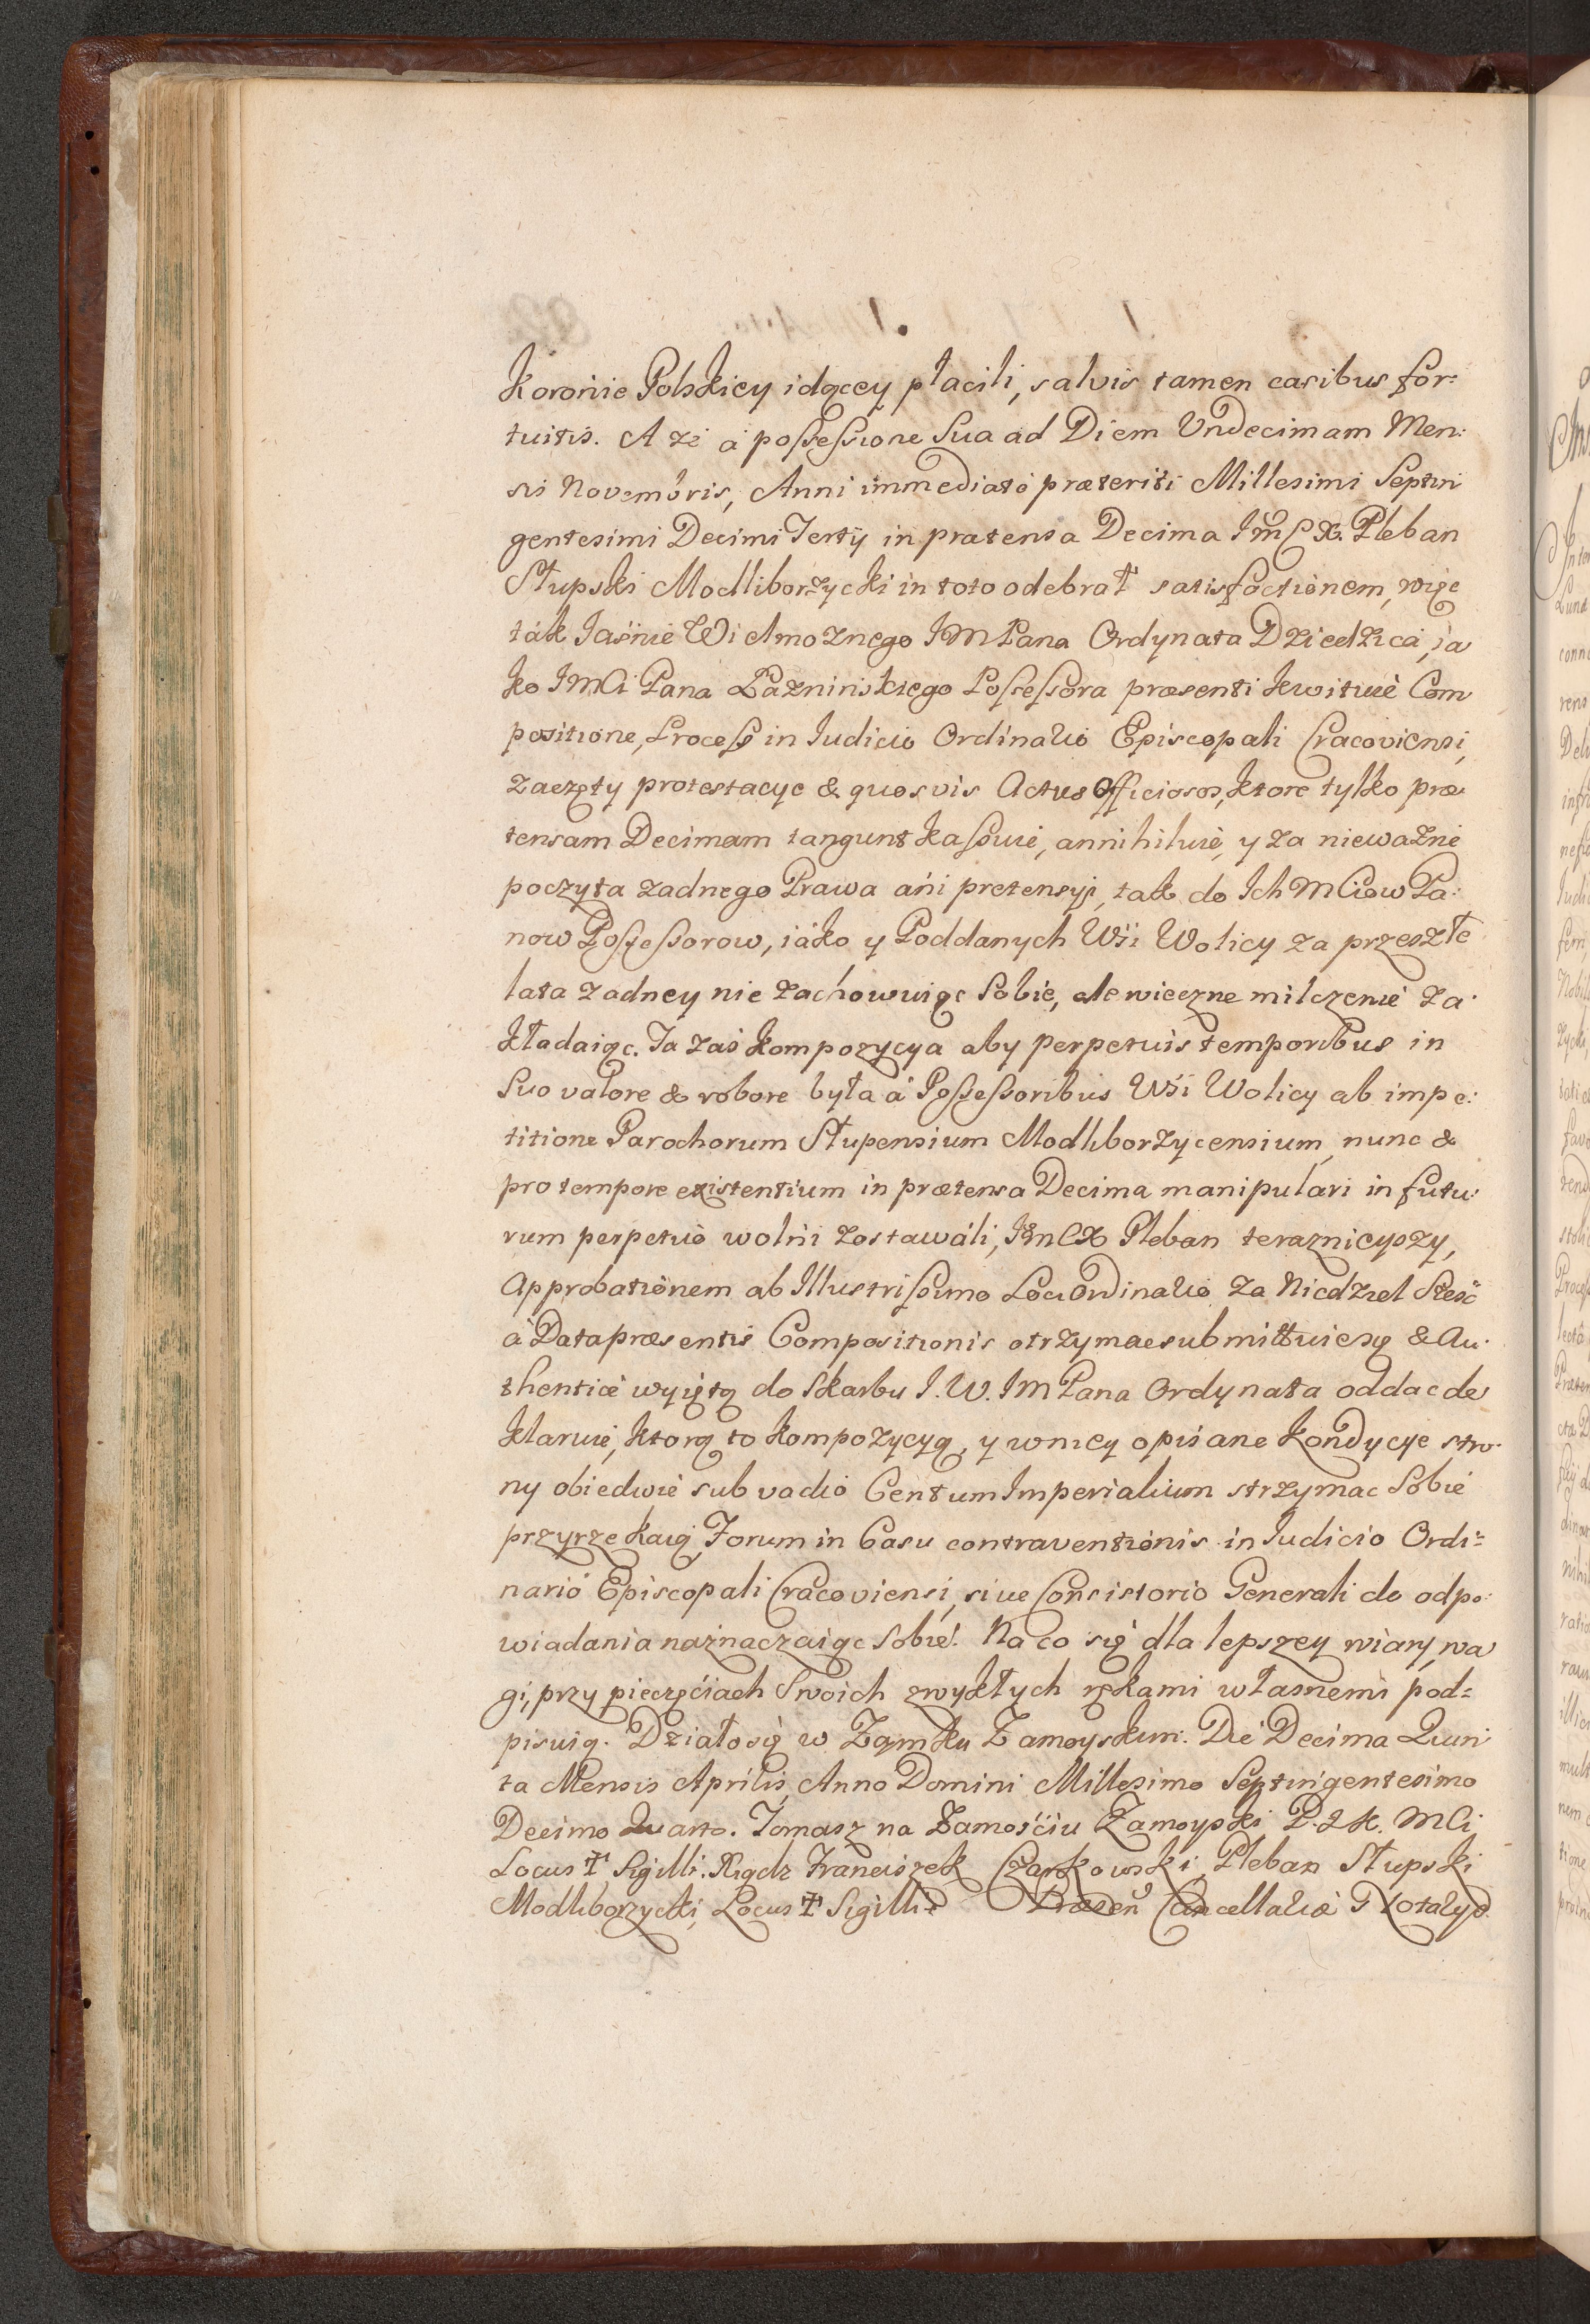 Koronie Polskiey idącey płacili, salvis tamen casibus for:
tuitis. A że à possessione Sua ad Diem Vndecimam Men:
sis Novembris, Anni immediatè præteriti Millesimi Septin
gentesimi Decimi Tertÿ in prætensa Decima ImCX. Pleban
Słupski Modliborzycki in toto odebrał satisfactionem, więc
ták Iaśnie Wielmożnego IMPana Ordynata Dziedzica, ia
ko IMCi Pana Possessora præsenti kwituie Com
positione, Process in Iudicio Ordinario Episcopali Cracoviensi,
zaczęty protestacye & quosvis Actus Officiosos, ktore tylko præ:
tensam Decimam tangunt kassuie, annihiluie, y za nieważne
poczyta żadnego Prawa áni pretensyi, tak do Ich MCiow Pa:
now Possessorow, iáko y Poddanych Wśi Wolicy za przeszłe
lata żadney nie zachowuiąc Sobie, ale wieczne milczenie za:
kładaiąc. Ta zaś kompozycya aby perpetuis temporibus in
Suo valore & robore była à Possessoribus Wśi Wolicy ab impe:
titione Parochorum Słupensium Modliborzycensium, nunc &
pro tempore existentium in prætensa Decima manipulari in futu:
rum perpetuò wolni zostawáli, ImCX Pleban teraznieyszy,
Approbationem ab Illustrissimo Loci Ordinario za Niedziel Sześć
à Data præsentis Compositionis otrzymac submittuie się & Au:
thenticè wyiętą do Skarbu I. W. IMPana Ordynata oddac de
klaruie, ktorą to kompozycyą, y wniey opisane Kondycye stro:
ny obiedwie sub vadio Centum Imperialium strzymac Sobie
przyrzekaią, Forum in Casu contraventionis in Iudicio Ordi=
nario Episcopali Cracoviensi, siue Consistorio Generali do odpo:
wiadania naznaczaiąc Sobie. Na co się dla lepszey wiary, wa
gi, przy pieczęćiach Swoich zwykłych rękami własnemi pod=
pisuią. Działo się w Zamku Zamoyskim. Die Decima Quin
ta Mensis Aprilis, Anno Domini Millesimo Septingentesimo
Decimo Quarto. Tomasz na Zamośćiu Zamoyski P. Z K. MCi
Locus ✝ Sigilli. Xiądz Franciszek Czarkowski, Pleban Słupski
Modliborzycki, Locus ✝ Sigilli. Præsen Cancellariæ